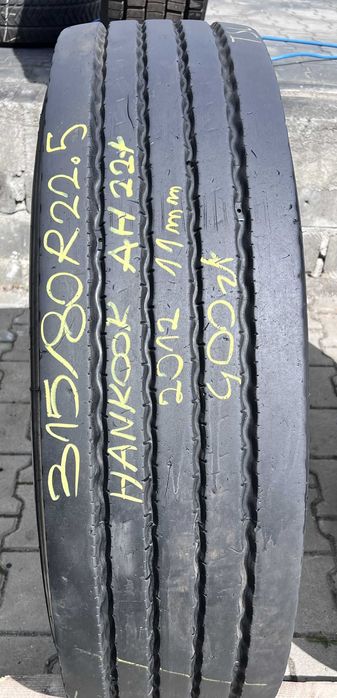 315/80R22.5
HANKOOK AH22+
2012 11mm
900zł